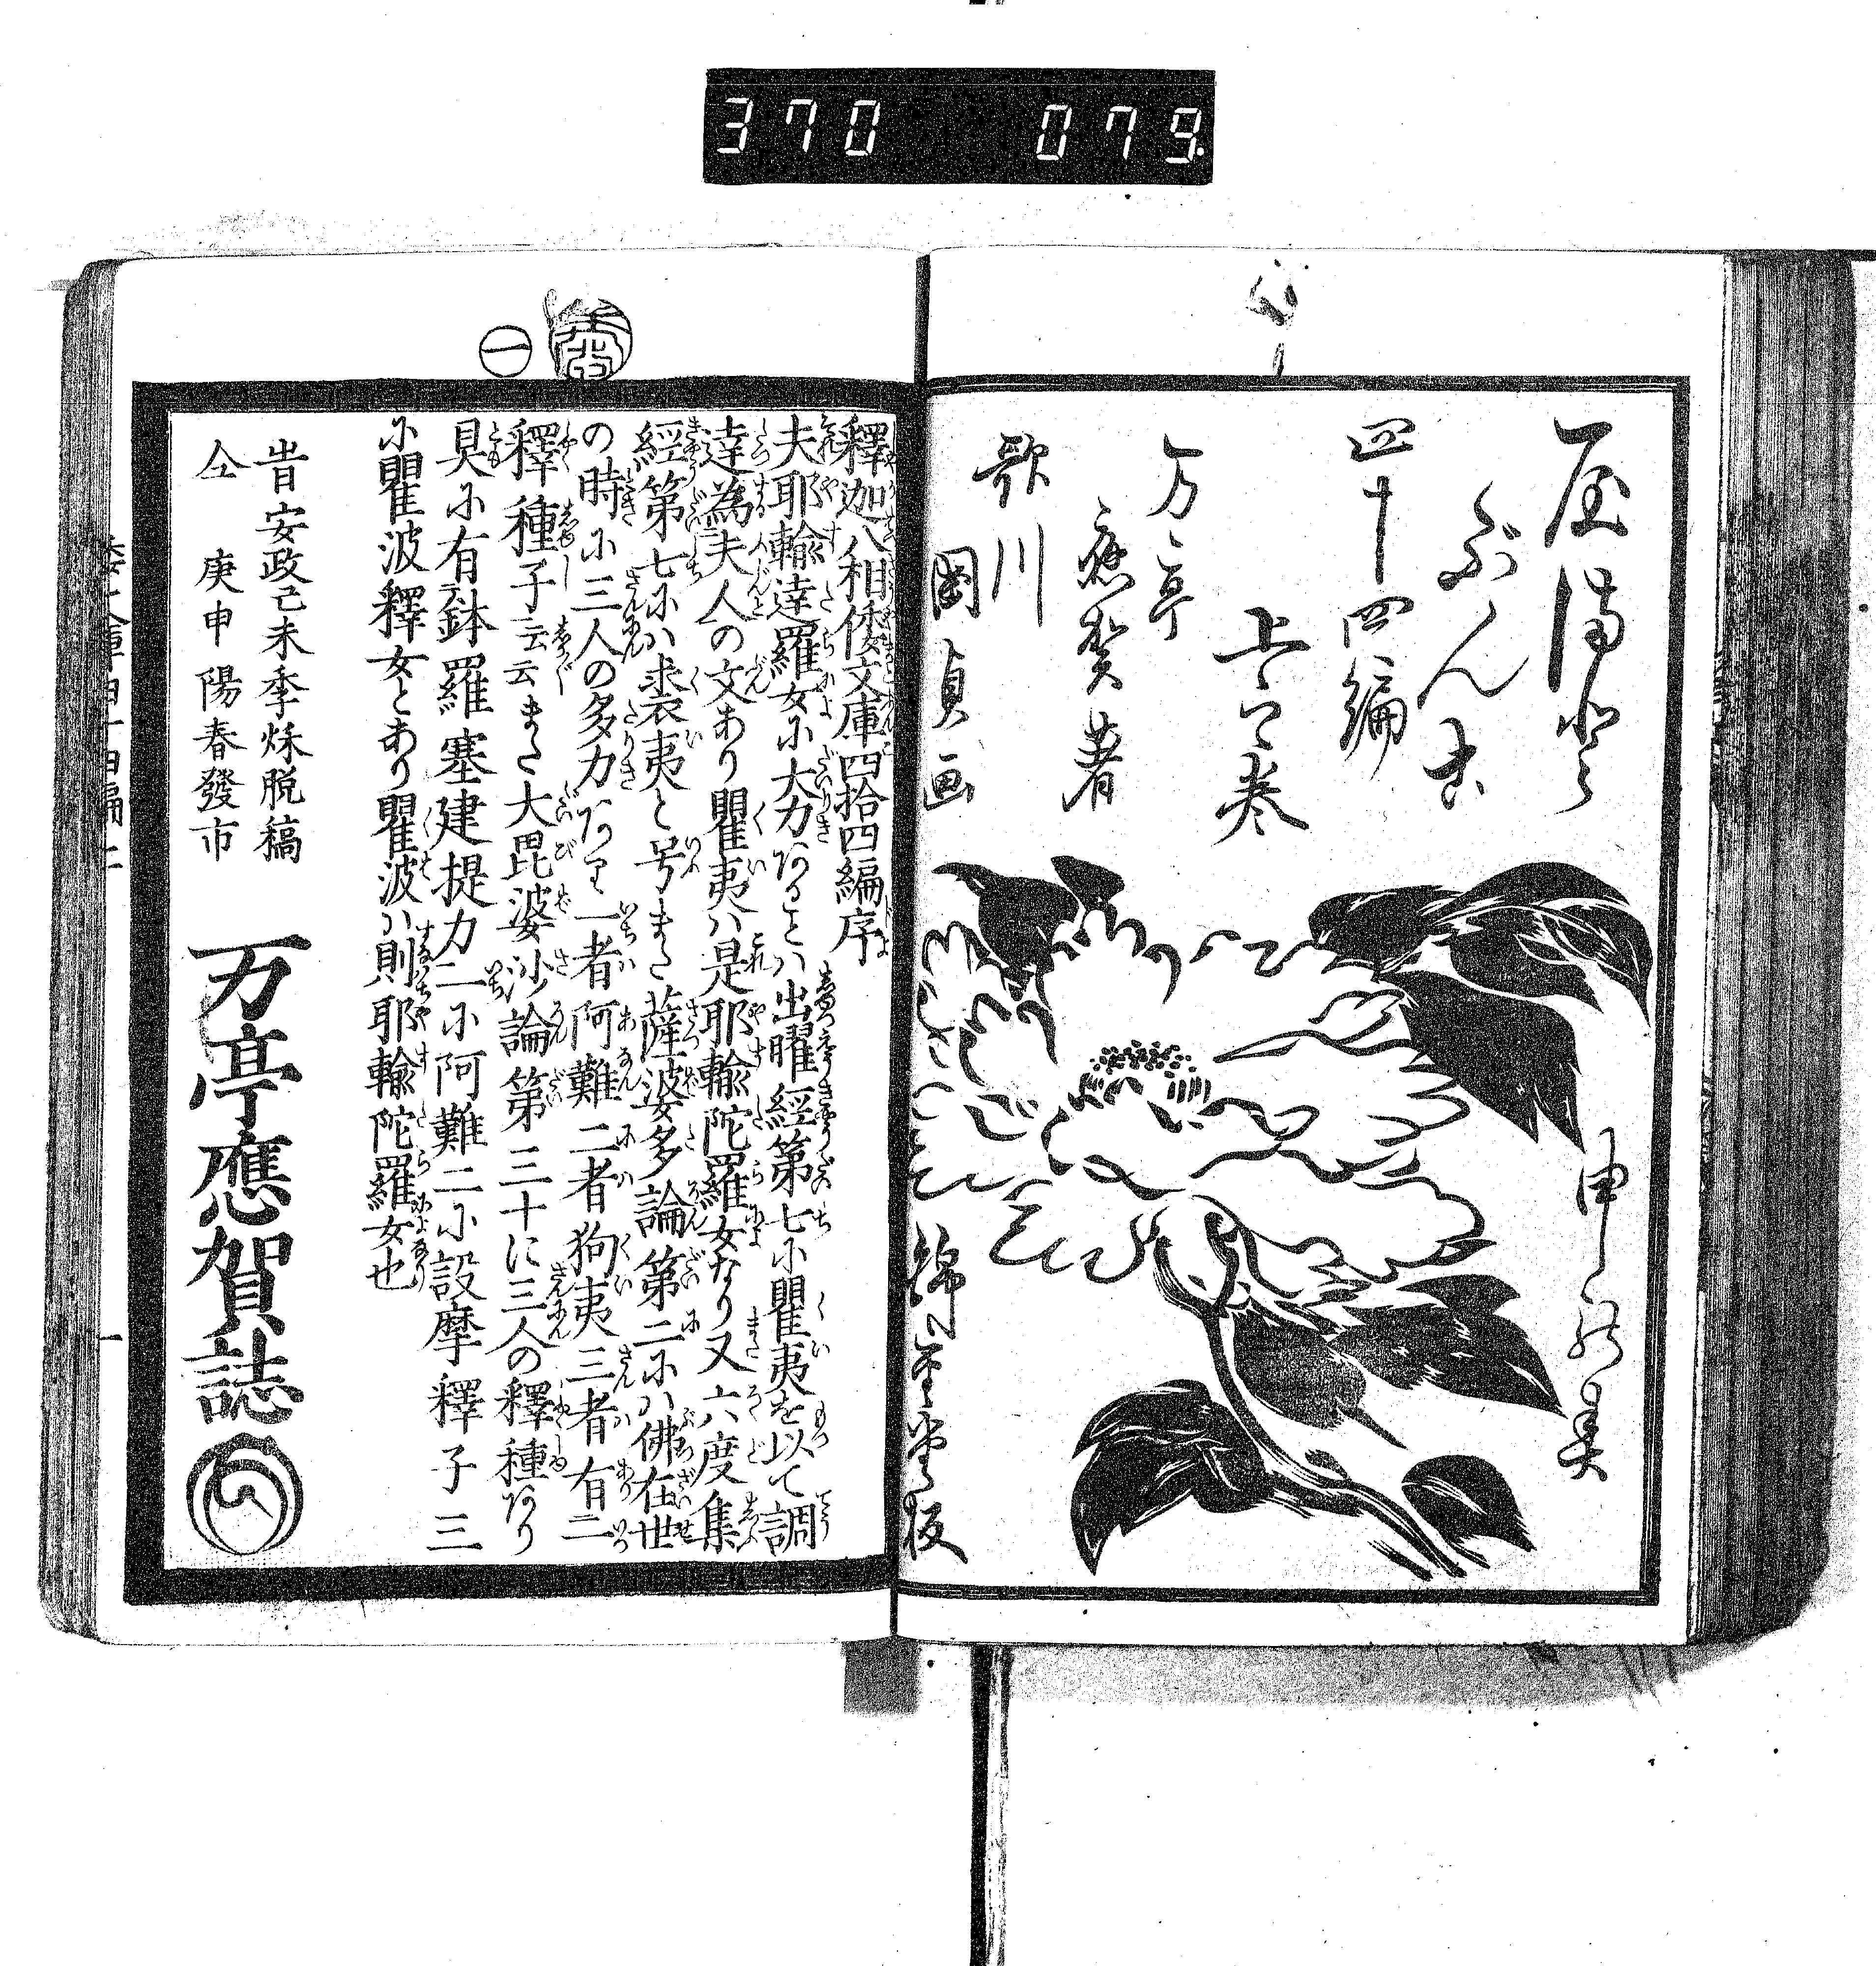 370 079
屋満登
ぶんこ
四十四編
上之巻
万亭
應賀著
歌川
國貞画
申の新
錦重堂板
一
釋迦八相倭文庫四拾四編序
夫耶輸達羅女に大力あることハ出曜經第七に瞿夷を以て調
達為夫人の文あり瞿夷ハ是耶輸陀羅女なり又六度集
經第七にハ裘夷と号また薩婆多論第二にハ佛在世
の時に三人の多力あり一者阿難二者狗夷三者有二
釋種子云云また大毘婆沙論第三十に三人の釋種あり
具に有鉢羅塞建提力一に阿難二に設摩釋子三
に瞿波釋女とあり瞿波ハ則耶輸陀羅女也
旹安政己未季秌脱稿
仝 庚申陽春發市
万亭應賀誌
倭文庫四十四編上
一